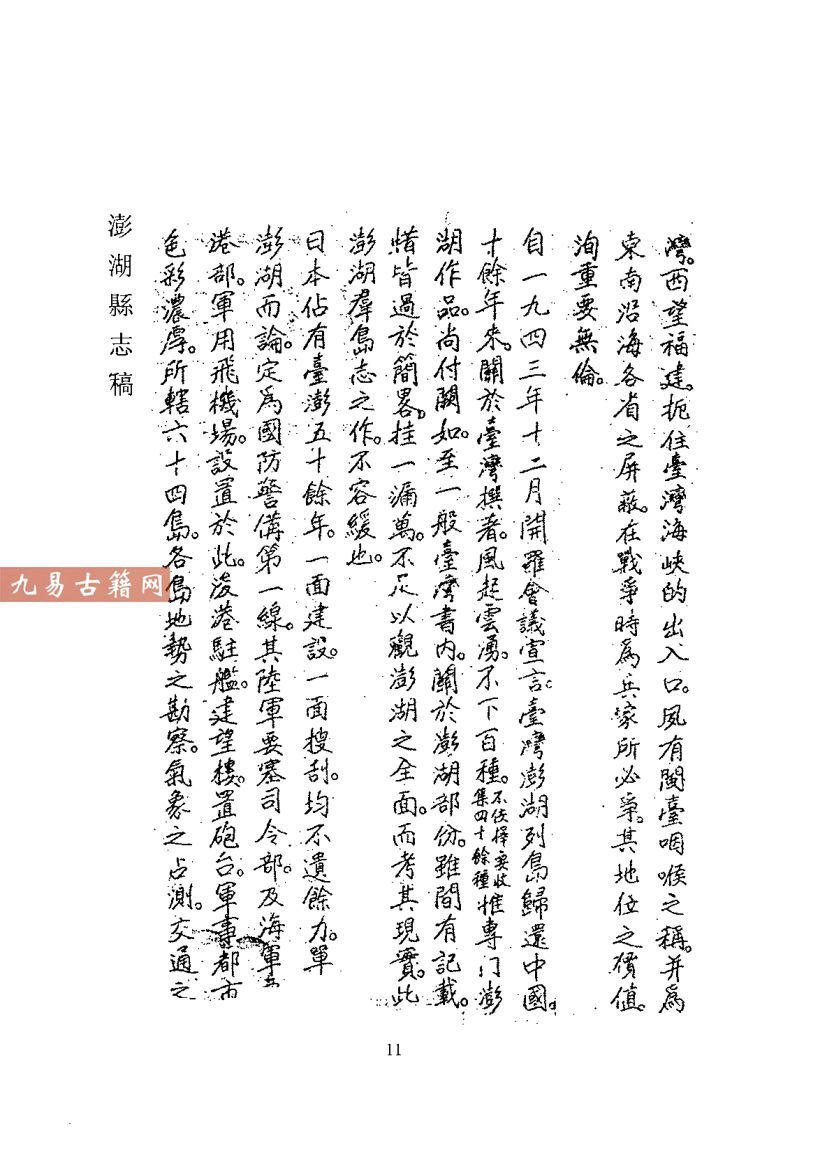 灣。西望福建。扼住臺灣海峽的出入口。夙有閩臺咽喉之稱。并為
東南沿海各省之屏蔽。在戰爭時為兵家所必爭。其地位之價值。
洵重要無倫。
自一九四三年十二月開羅會議宣言。臺灣澎湖列島歸還中國。
十餘年來。關於臺灣撰著。風起雲湧。不下百種。不佞擇要收集四十餘種惟專門澎
湖作品。尚付闕如。至一般臺灣書內。關於澎湖部份。雖間有記載。
惜皆過於簡畧。挂一漏萬。不足以觀澎湖之全面。而考其現實。此
澎湖羣島志之作。不容緩也。
日本佔有臺澎五十餘年。一面建設。一面搜刮。均不遺餘力。單
澎湖而論。定為國防警備第一線。其陸軍要塞司令部。及海軍
港部。軍用飛機場。設置於此。浚港駐艦。建望樓。置砲台。軍事都市
色彩濃厚。所轄六十四島。各島地勢之勘察。氣象之占測。交通之
澎湖縣志稿
九易古籍网
11